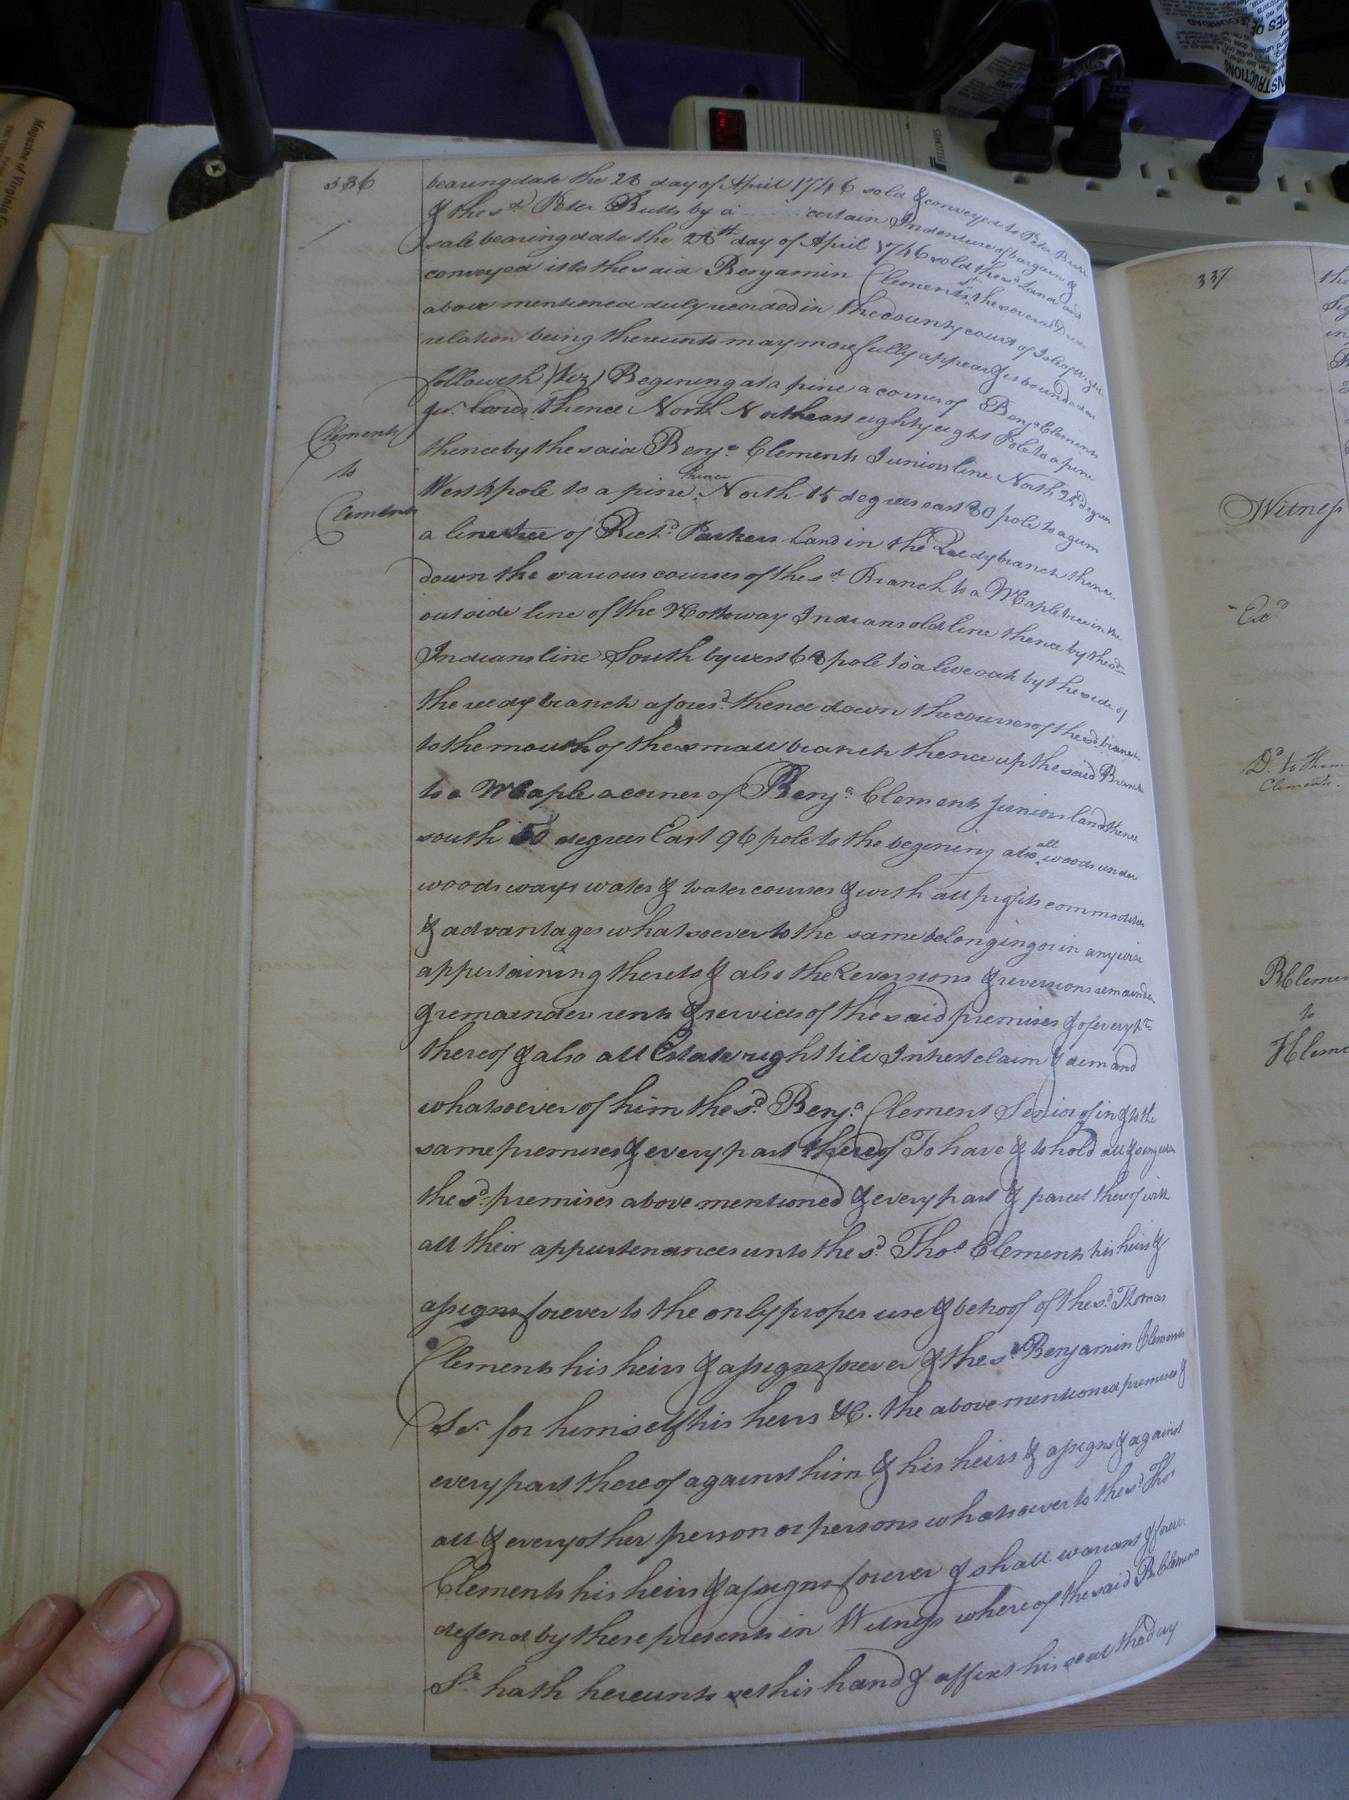 336
bearing date the 28 day of April 1746 sold & conveyed to Peter Butts
& the sd Peter Butts by a ...... certain Indenture of bargain &
sale bearing date the 28th day of April 1746 sold the sd Land and
conveyed it to the said Benjamin Clements Sr the several Deeds
above mentioned duly recorded in the county court of Isle of wight
relation being thereunto may more fully appear & is bounded as
followeth (Viz) Begining at a pine a corner of Benja Clements
Jur. lands thence North Northeast eighty eight Pole to a pine
Clements
to
Clements
thence by the said Benja Clements Juniors line North 28 degrees
West pole to a pine thence North 15 degrees east 80 pole to a gum
a line tree of Richd Parkers land in the Reedy branch thence
down the various courses of the sd Branch to a Maple tree in the
outside line of the Nottoway Indians old line thence by the sd
Indians line South by west 68 pole to a live oak by the side of
the reedy branch aforesd thence down the courses of the sd branch
to the mouth of the small branch thence up the said Branch
to a Maple a corner of Benja Clements Juniors land thence
south 50 degrees East 96 pole to the begining also all woods under
woods ways water & water courses & with all profits commodities
& advantages whatsoever to the same belonging or in any wise
appertaining thereto & also the Reversions & reversions remainder
& remainders rents & services of the said premises & of every pt
thereof & also all Estate right title Interest claim & demand
whatsoever of him the sd Benja Clement Senior of in & to the
same premises & every part thereof To have & to hold all & singular
the sd premises above mentioned & every part & parcel thereof with
all their appurtenances unto the sd Thos Clements his heirs &
assigns forever to the only proper use & behoof of the sd Thomas
Clements his heirs & assigns forever & the sd Benjamin Clements
Sr. for himself his heirs &C. the above mentioned premises &
every part thereof against him & his heirs & assigns & against
all & every other person or persons whatsoever to the sd Thos
Clements his heirs & assigns forever & shall warrant & forever
defend by these presents in Witness whereof the said B Clements
Sr hath hereunto set his hand & affixt his seal the day
337
Witness
Exd
Dd to Thom
Clements.
B Clemen
to
Magazine of Virginia
FELLOWES